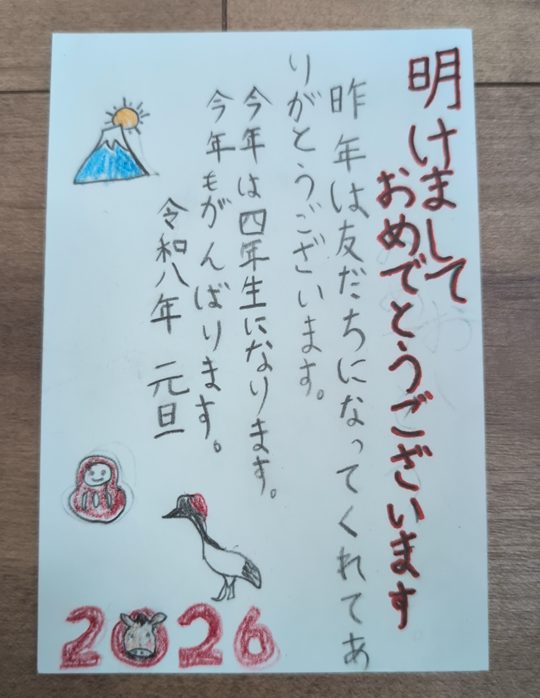 明けまして
おめでとうございます
昨年は友だちになってくれてあ
りがとうございます。
今年は四年生になります。
今年もがんばります。
令和八年 元旦
2026